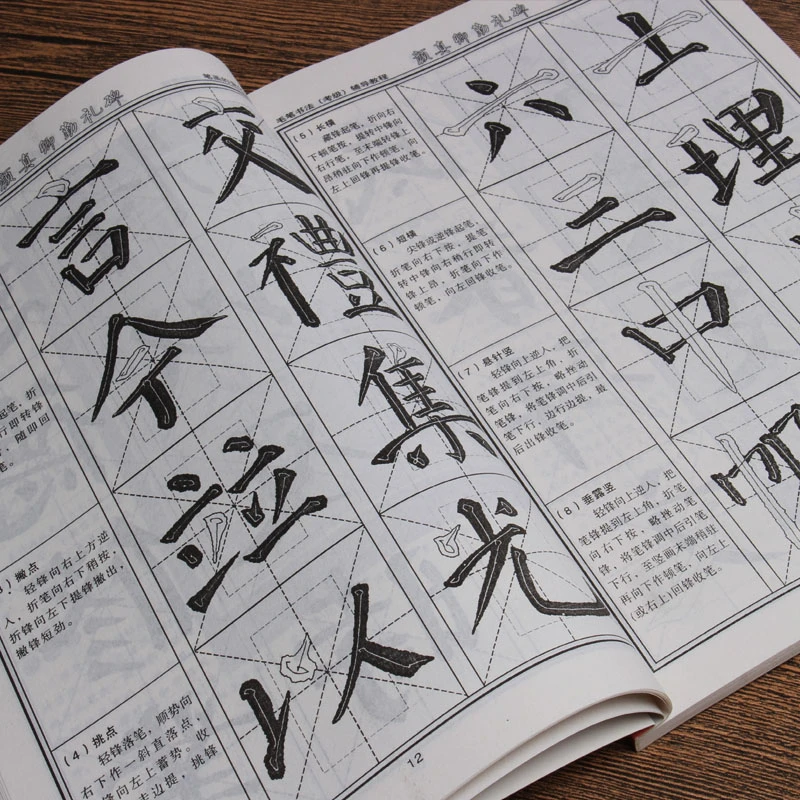 颜真卿勤礼碑
言
今
以
交
禮
集
光
起笔，折
行即转锋
，随即回
笔。
撇点
轻锋向右上方逆
入，折笔向右下稍按，
折锋向左下提锋撇出，
撇锋短劲。
（4）挑点
轻锋落笔，顺势向
右下作一斜直落点，收
锋向左上蓄势。
走边提，挑锋
12
颜真卿勤礼碑
毛笔书法（考级）辅导教程
（5）长横
藏锋起笔，折向右
下顿笔按，提转中锋向
右行笔，至末端转锋上
昂稍驻向下作顿笔，向
左上回锋再提锋收笔。
（6）短横
尖锋或逆锋起笔，
折笔向右下按，提笔
转中锋向右稍行即转
锋上昂，折笔向下作
顿笔，向左回锋收笔。
（7）悬针竖
轻锋向上逆入，把
笔锋提到左上角，折
笔向右下按，略挫动
笔锋，将笔锋调中后引
笔下行，边行边提，最
后出锋收笔。
（8）垂露竖
轻锋向上逆入，把
笔锋提到左上角，折笔
向右下按，略挫动笔
锋，将笔锋调中后引笔
下行，至竖画末端稍驻
再向下作顿笔，向左上
（或右上）回锋收笔。
六
二
口
上
埋